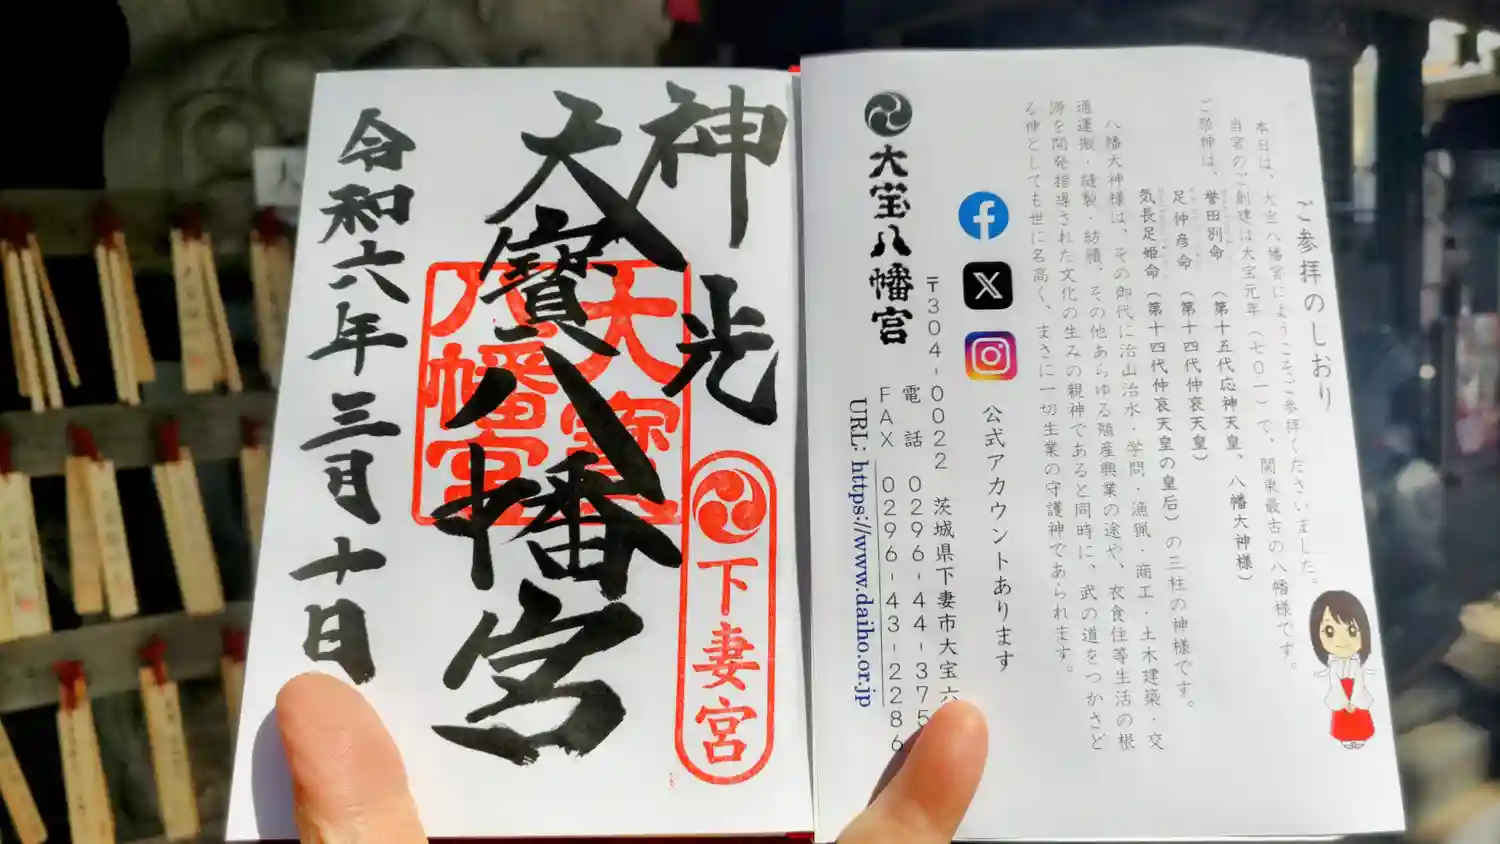 ご参拝のしおり
本日は、大宝八幡宮にようこそご参拝くださいました。
当宮のご創建は大宝元年(七〇一)で、関東最古の八幡様です。
ご祭神は、誉田別命(第十五代応神天皇、八幡大神様)
足仲彦命(第十四代仲哀天皇)
気長足姫命(第十四代仲哀天皇の皇后)の三柱の神様です。
八幡大神様は、その御代に治山治水・学問・漁猟・商工・土木建築・交
通運搬・縫製・紡績、その他あらゆる殖産興業の途や、衣食住等生活の根
源を開発指導された文化の生みの親神であると同時に、武の道をつかさど
る神としても世に名高く、まさに一切生業の守護神であられます。
公式アカウントあります
〒304-0022 茨城県下妻市大宝六
電話 0296-44-375
FAX 0296-43-2286
URL: https://www.daiho.or.jp
大宝八幡宮
神光
下妻宮
大寳八幡宮
大寳
八幡宮
令和六年三月十日